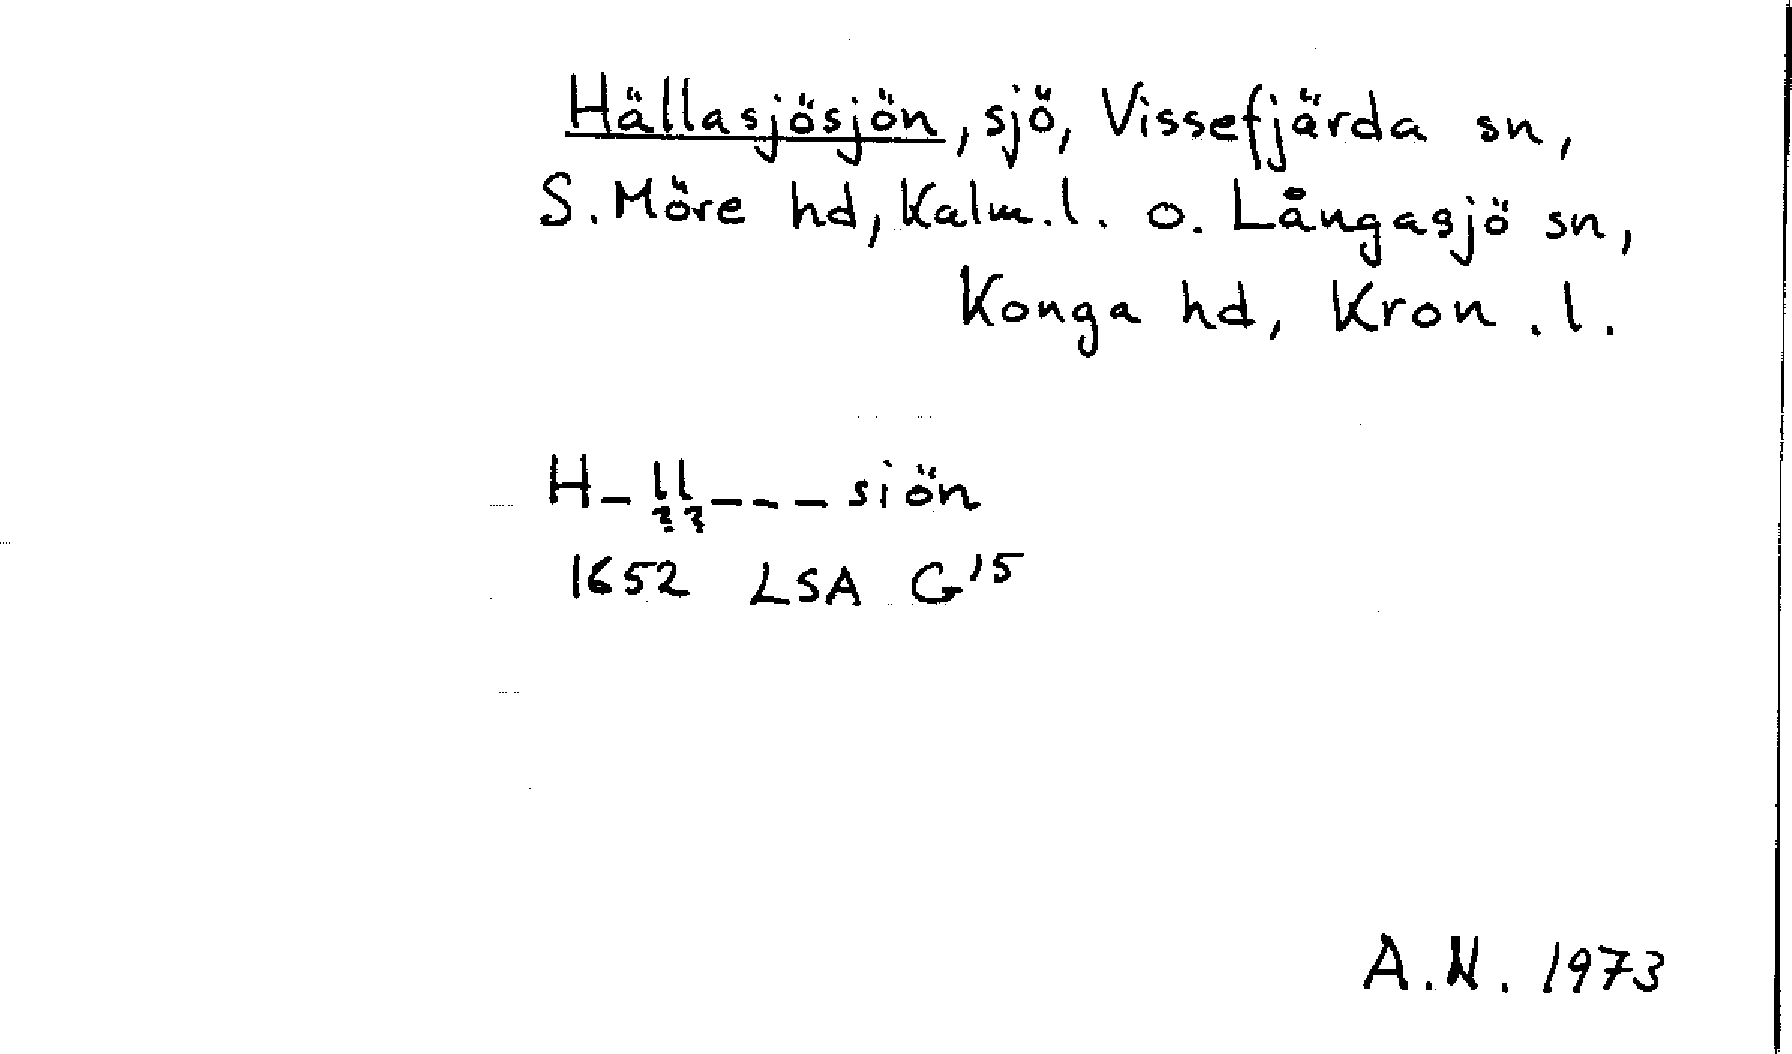 Hällasjösjön, sjö, Vissefjärda sn,
S. Möre hd, Kalm. l. o. Långasjö sn,
Konga hd, Kron. l.
H-ll---siön
??
1652 LSA G15
A.N. 1973